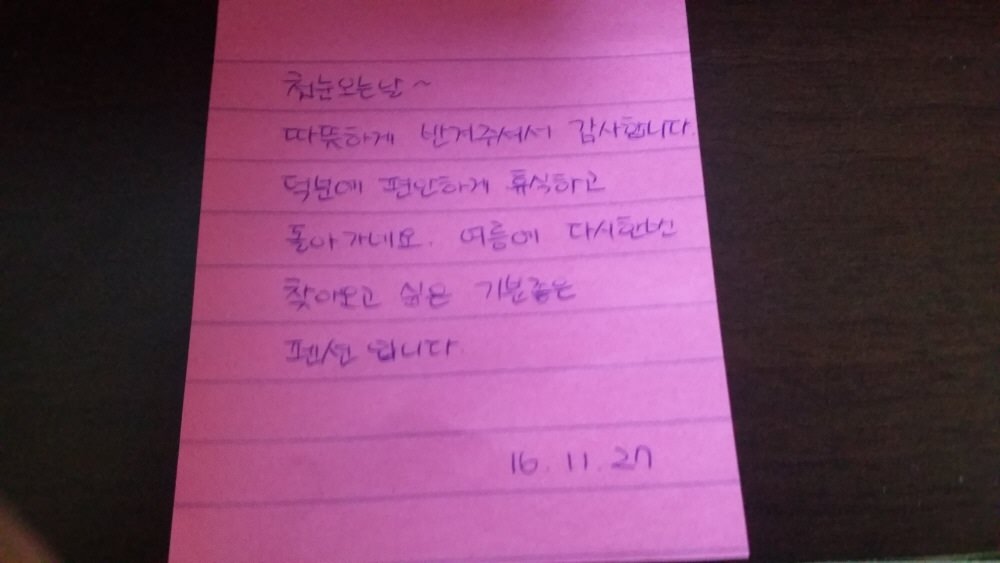 첫눈오는날~
따뜻하게 반겨주셔서 감사합니다.
덕분에 편안하게 휴식하고
돌아가네요. 여름에 다시한번
찾아오고 싶은 기분좋은
펜션 입니다.
16. 11. 27